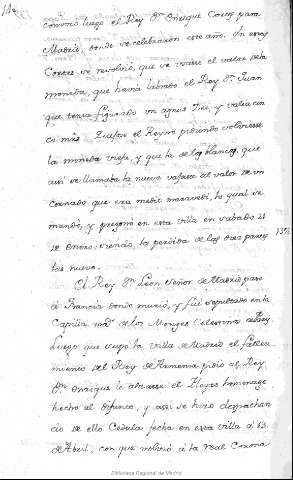 convocó luego el Rey Dn. Enrique Cortes para
Madrid, donde se celebraron este año. En estas
Cortes se resolvió, que se vajase el valor de la
moneda, que havia labrado el Rey Dn. Juan
que tenia figurado un agnus Dei, y valia cin
co mas. el Reyno pidiendo volviese
la moneda vieja, y que la de los blancos, que
assi se llamaba la nueva vajase al valor de un
cornado que era medio maravedi, lo qual se
mandó, y pregonó en esta villa en sabado 21
de Enero, siendo la perdida de las dos partes
las nueve.
El Rey Dn. Leon Señor de Madrid pasó
à Francia donde murió, y fué sepultado en la
Capilla mor. de los Monges Celestinos de Paris
Luego que supo la villa de Madrid el falleci
miento del Rey de Armenia pidió al Rey
Dn. Enrique le alzasse el Pleyto homenage
hecho al difunto, y assi se hizo despachan
do se ello Cedula fecha en esta villa à 13.
de Abril, con que volvió à la real Corona
Biblioteca Regional de Madrid